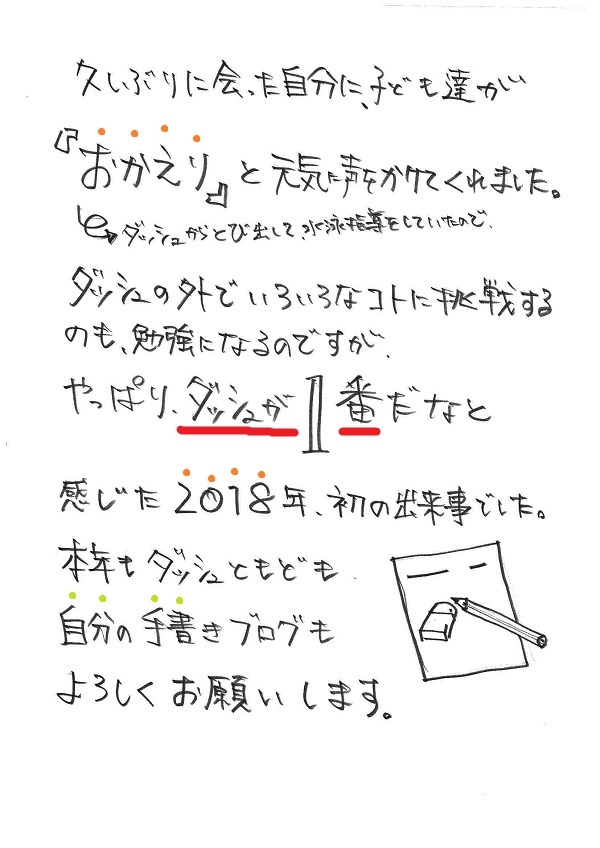 久しぶりに会った自分に、子ども達が
『おかえり』と元気に声をかけてくれました。
ダッシュからとび出して、水泳指導をしていたので、
ダッシュの外でいろいろなコトに挑戦する
のも、勉強になるのですが、
やっぱり、ダッシュが1番だなと
感じた2018年、初の出来事でした。
本年もダッシュともども
自分の手書きブログも
よろしくお願いします。